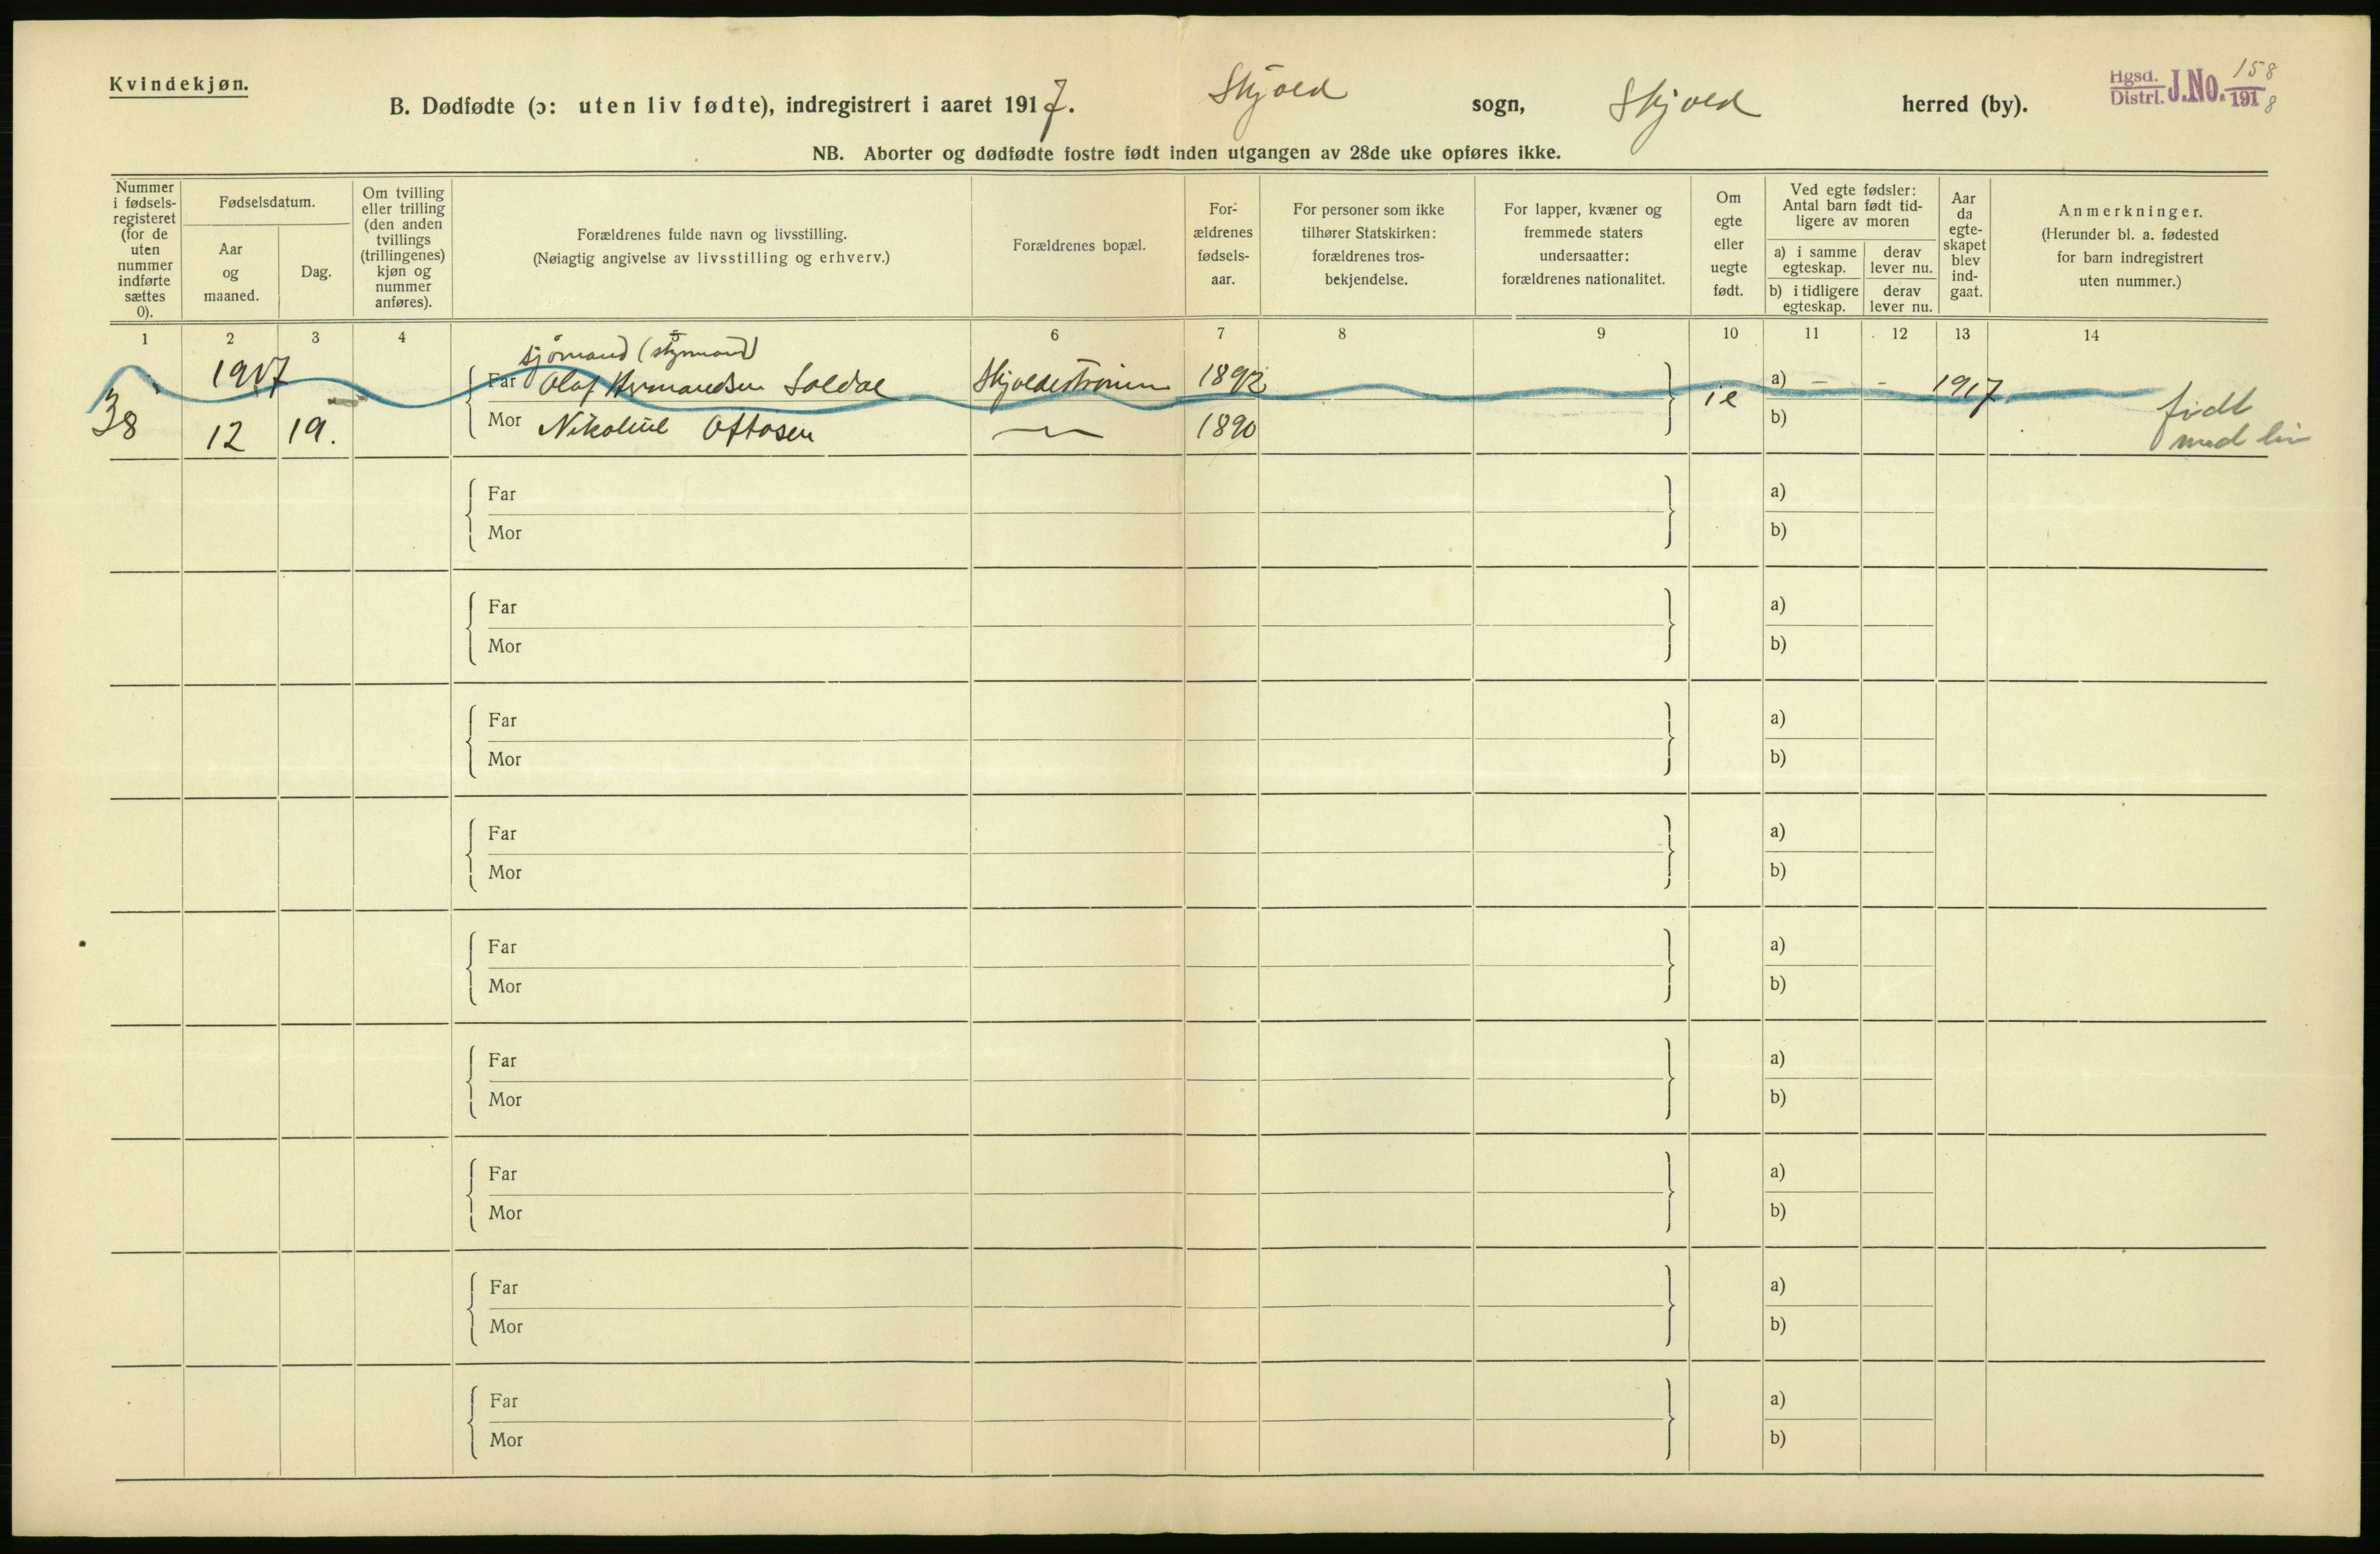 Kvindekjøn.
B. Dødfødte (ɔ: uten liv fødte), indregistrert i aaret 1917. Skjold sogn, Skjold herred (by).
Hgsd. Distrl. J.No. 158/1918
NB. Aborter og dødfødte fostre født inden utgangen av 28de uke opføres ikke.
Nummer i fødsels-registeret (for de uten nummer indførte sættes 0).
Fødselsdatum.
Aar og maaned.
Dag.
Om tvilling eller trilling (den anden tvillings (trillingenes) kjøn og nummer anføres).
Forældrenes fulde navn og livsstilling.
(Nøiagtig angivelse av livsstilling og erhverv.)
Forældrenes bopæl.
For-ældrenes fødsels-aar.
For personer som ikke tilhører Statskirken: forældrenes tros-bekjendelse.
For lapper, kvæner og fremmede staters undersaatter: forældrenes nationalitet.
Om egte eller uegte født.
Ved egte fødsler: Antal barn født tid-ligere av moren
a) i samme egteskap.
derav lever nu.
b) i tidligere egteskap.
derav lever nu.
Aar da egte-skapet blev ind-gaat.
Anmerkninger.
(Herunder bl. a. fødested for barn indregistrert uten nummer.)
1 2 3 4 5 6 7 8 9 10 11 12 13 14
sjömand (styrmand)
1917 Far Olaf Soldal 1892 a) - - 1917
38 12 19. Mor Ottosen 1890 b)
født
med liv
Far a)
Mor b)
Far a)
Mor b)
Far a)
Mor b)
Far a)
Mor b)
Far a)
Mor b)
Far a)
Mor b)
Far a)
Mor b)
Far a)
Mor b)
Far a)
Mor b)